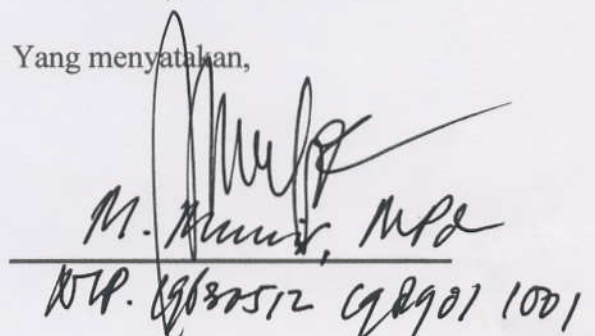 Yang menyatakan,
M. Munir, MPd
NIP. 19630512 198901 1001